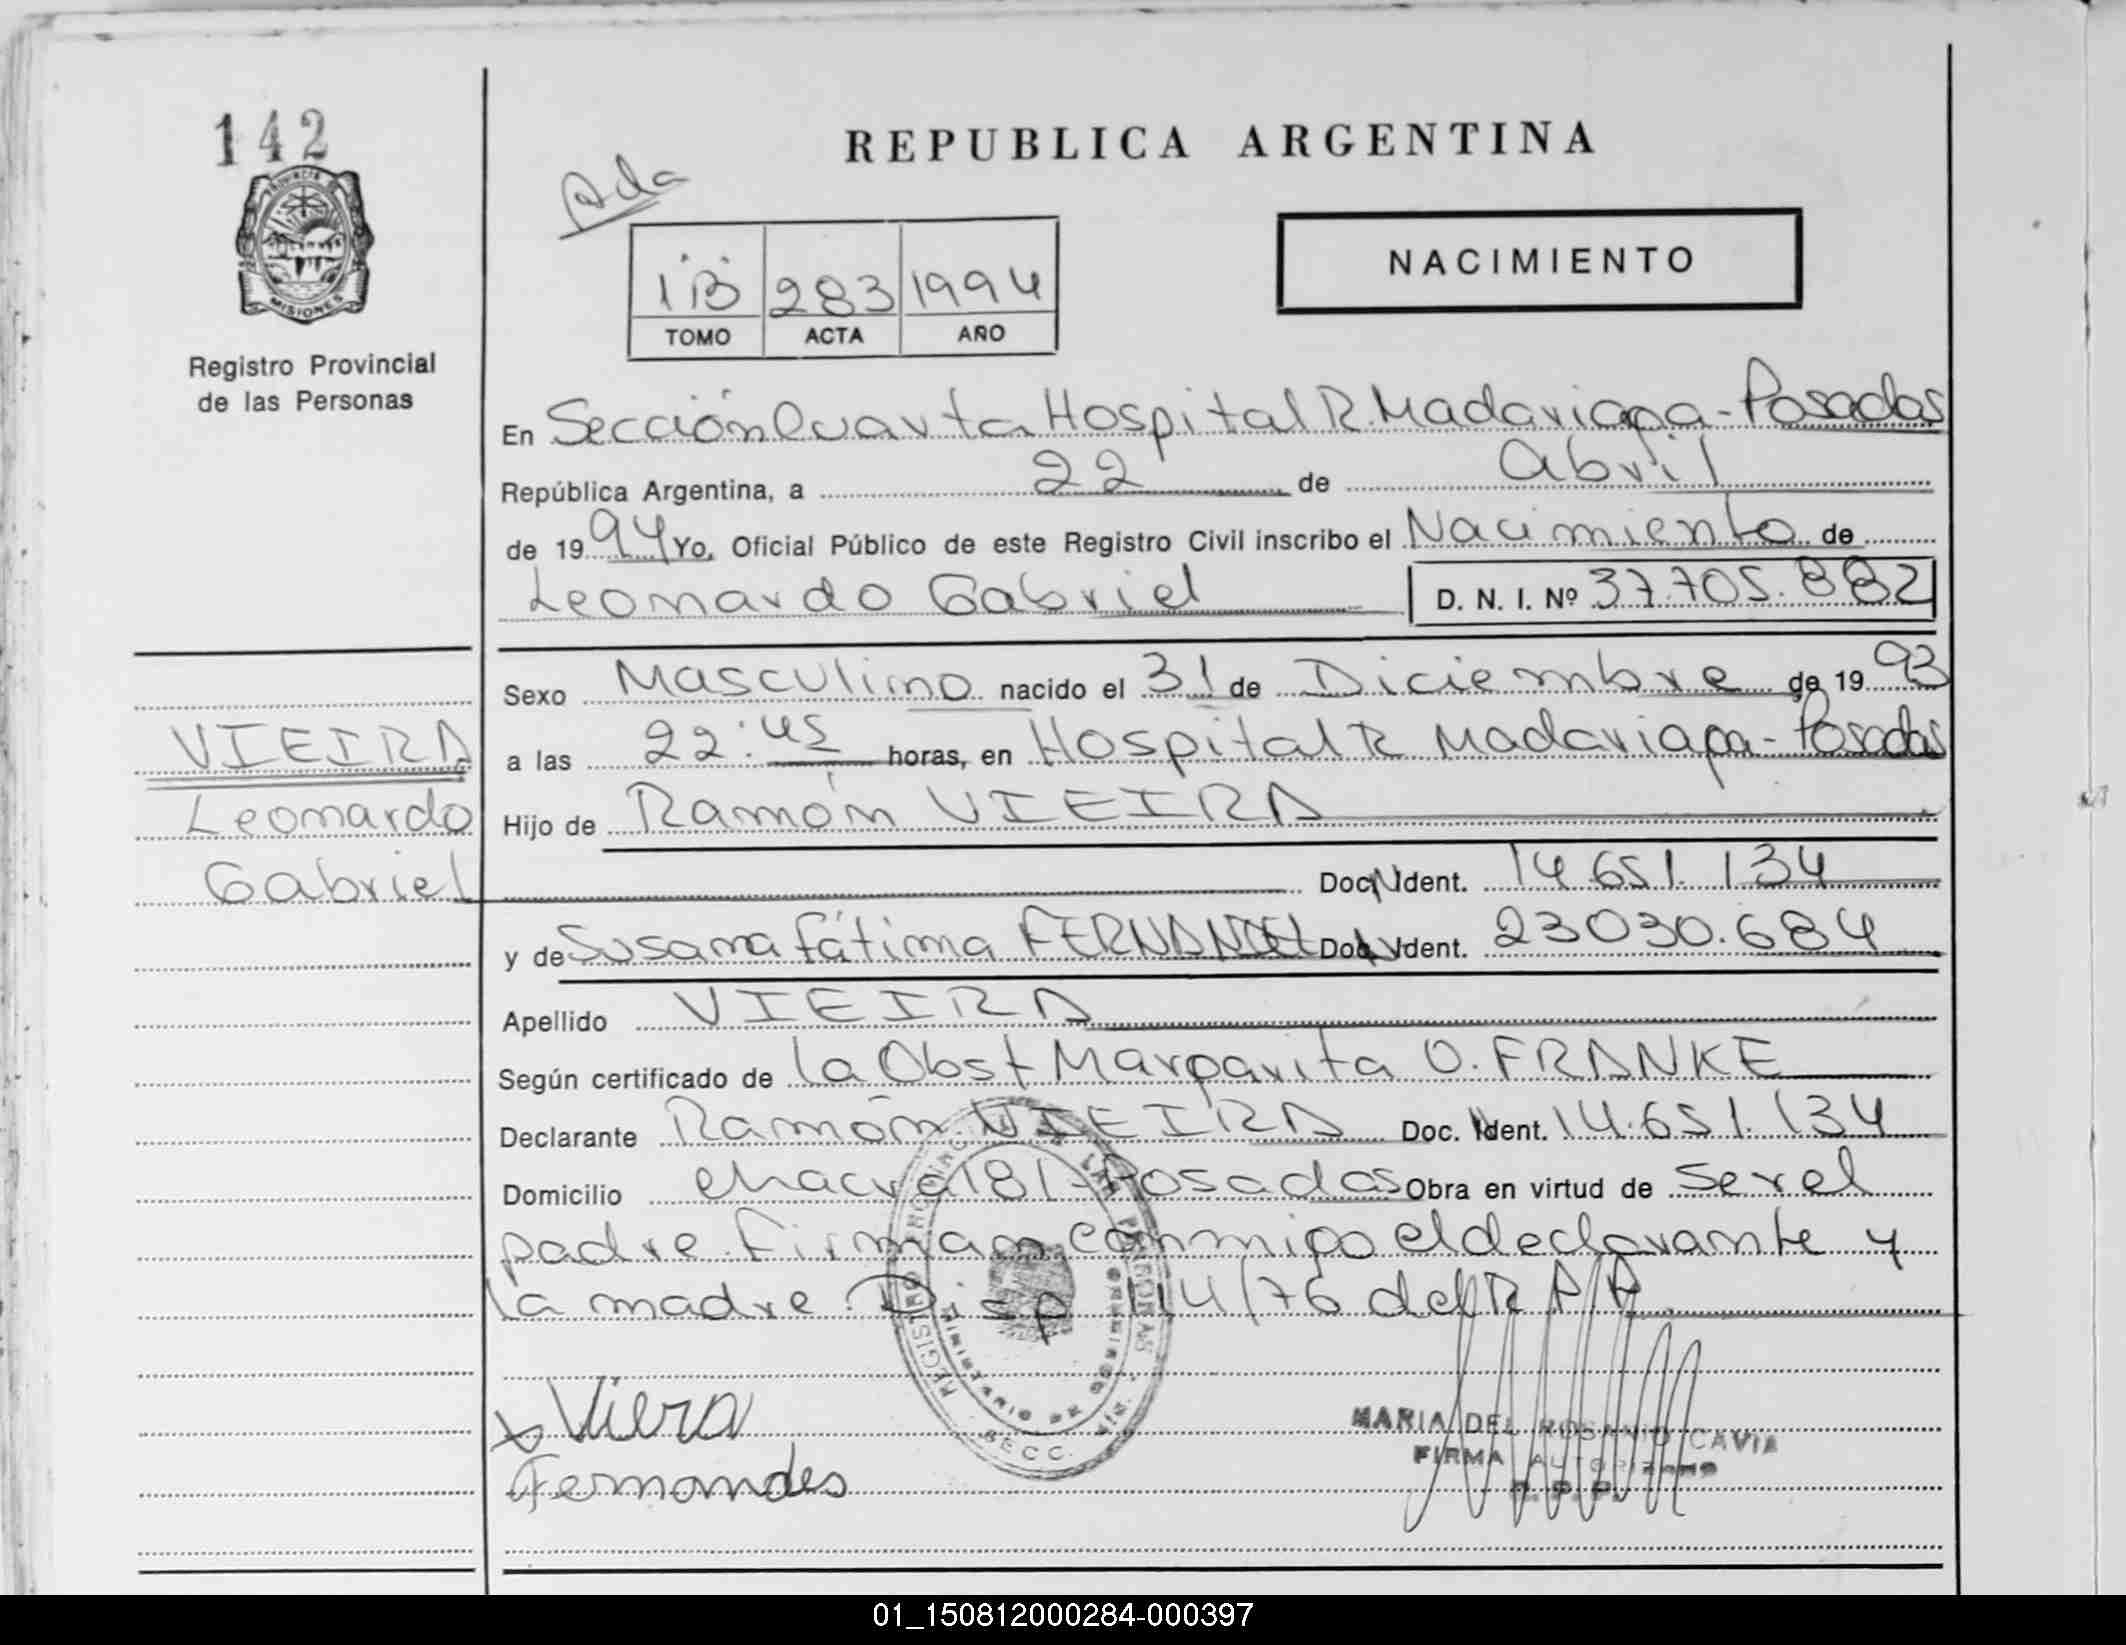 142
PROVINCIA DE
MISIONES
Registro Provincial
de las Personas
REPUBLICA ARGENTINA
NACIMIENTO
1'B' 283 1994
TOMO ACTA AÑO
En Sección Cuarta Hospital R. Madariaga - Posadas
República Argentina, a 22 de Abril
de 1994 Yo, Oficial Público de este Registro Civil inscribo el Nacimiento de
Leonardo Gabriel D. N. I. Nº 37.705.882
Sexo Masculino nacido el 31 de Diciembre de 1993
a las 22:45 horas, en Hospital R Madariaga - Posadas
Hijo de Ramón VIEIRA
Doc. Ident. 14.651.134
y de Susana Fátima FERNANDEZ Doc. Ident. 23030.684
Apellido VIEIRA
Según certificado de la Obst Margarita O. FRANKE
Declarante Ramón VIEIRA Doc. Ident. 14.651.134
Domicilio chacra 181 - Posadas Obra en virtud de ser el
padre. Firman conmigo el declarante y
la madre. Disp 114/76 del R.P.P.
VIEIRA
Leonardo
Gabriel
x Viera
Fernandes
REGISTRO PROVINCIAL DE LAS PERSONAS
MINISTERIO DE GOBIERNO
SECC.
MARIA DEL ROSARIO CAVIA
FIRMA AUTORIZADA
R. P. P.
01_150812000284-000397